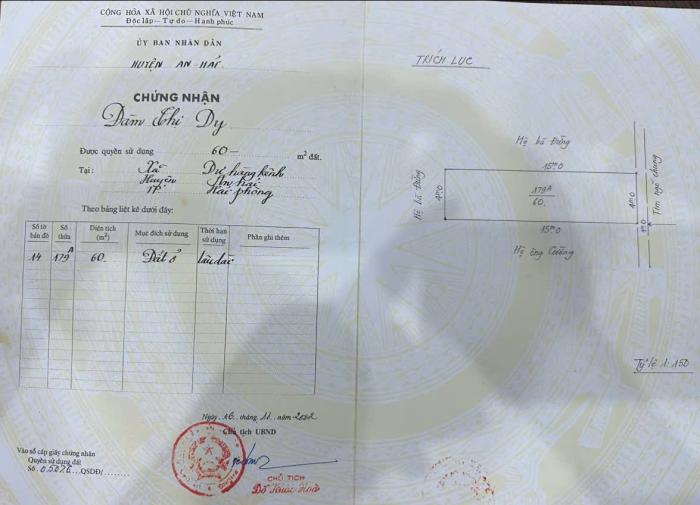 CỘNG HÒA XÃ HỘI CHỦ NGHĨA VIỆT NAM
Độc lập - Tự do - Hạnh phúc
ỦY BAN NHÂN DÂN
HUYỆN AN HẢI
CHỨNG NHẬN
Đàm Thị Dy
Được quyền sử dụng 60 m² đất.
Tại: Xã Dư hàng kênh
Huyện An hải
TP. Hải phòng
Theo bảng liệt kê dưới đây:
Số tờ bản đồ Số thửa Diện tích (m²) Mục đích sử dụng Thời hạn sử dụng Phần ghi thêm
14 179A 60 Đất ở lâu dài
Ngày 16 tháng 11 năm 2002
Chủ tịch UBND
CHỦ TỊCH
Đỗ Khắc Hoà
Vào sổ cấp giấy chứng nhận
Quyền sử dụng đất
Số 05276 QSDĐ/
TRÍCH LỤC
Hộ bà Đông
15m0
Hộ bà Đông
4m0
179A
60
4m0
1m0
Tim ngõ chung
15m0
Hộ ông Cường
Tỷ lệ 1:150